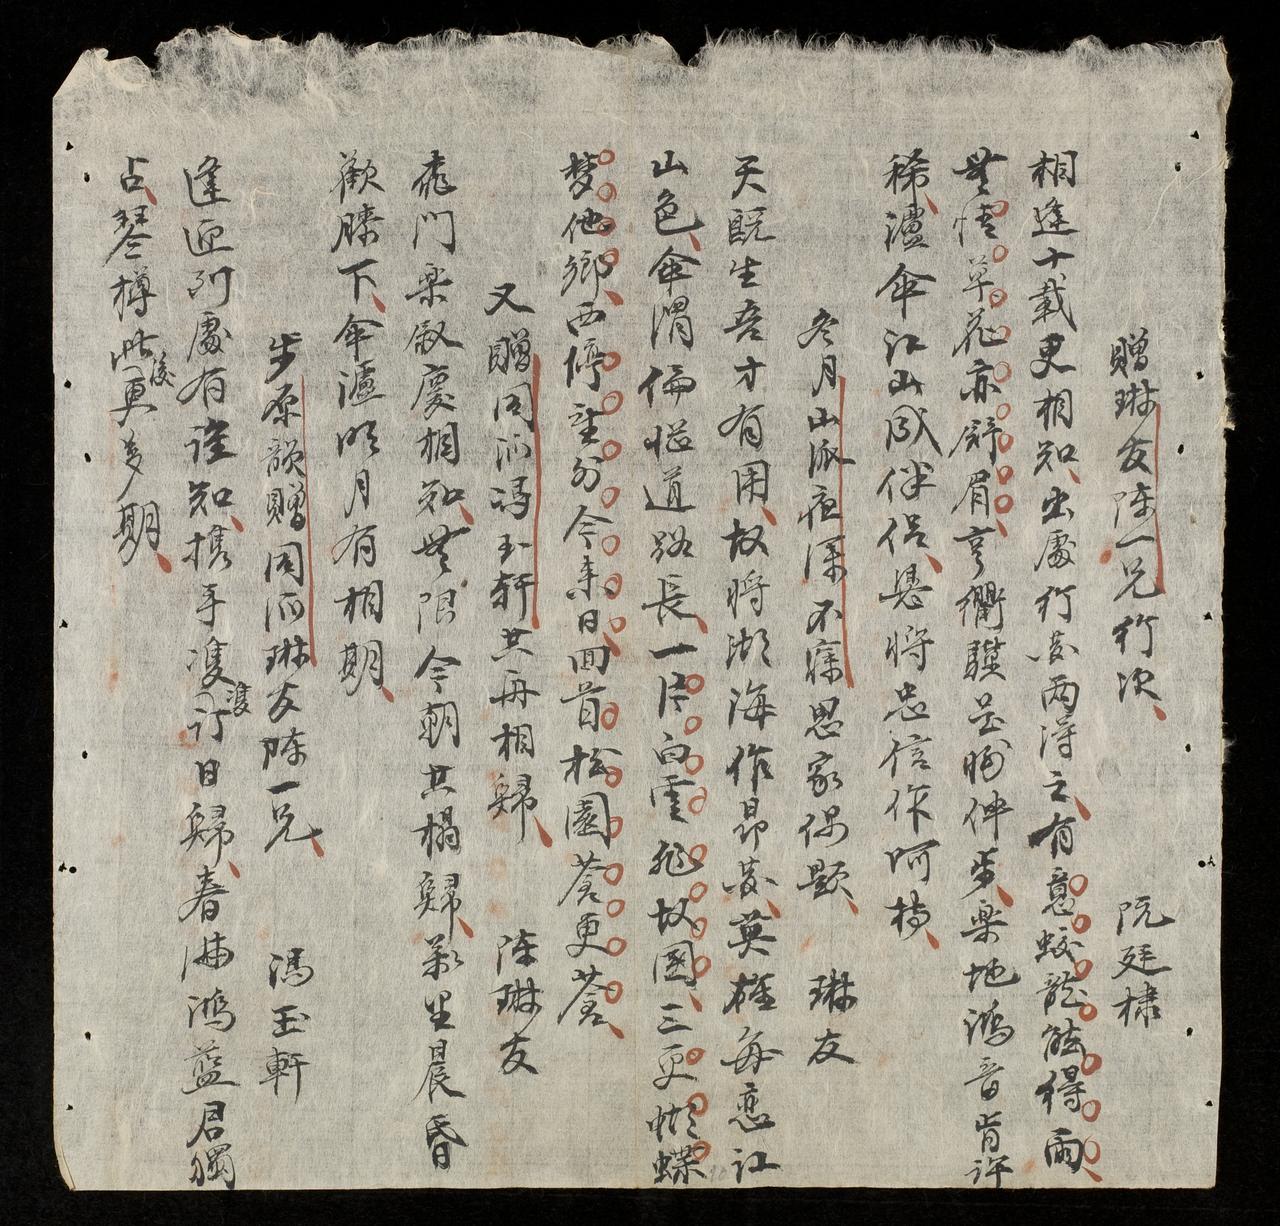 贈琳友陈一兄行次 阮廷棣
相逢十载更相知出處行藏两得之有意蛟龍能得雨
無情草花亦舒眉亨衢驥足晩伸步楽地鴻音肯許
稀瀘傘江山成伴侣悬将忠信作呵持
冬月山派夜深不寐思家偶題 琳友
天既生吾才有用故将湖海作昂藏英雄每恋江
山色傘渭偏愁道路長一片白雲飛故國三更蝴蝶
梦他鄉西停望外今来日回首松園蒼更蒼
又贈同派馮玉軒共再相歸 陈琳友
龍門楽叙慶相知無限今朝共榻歸萬里晨昏
歡膝下傘瀘明月有相期
步原韻贈同派琳友陈一兄 馮玉軒
逢迎到處有誰知携手隻訂日歸春浦鴻藍君獨
隻
占琴樽此更多期
後